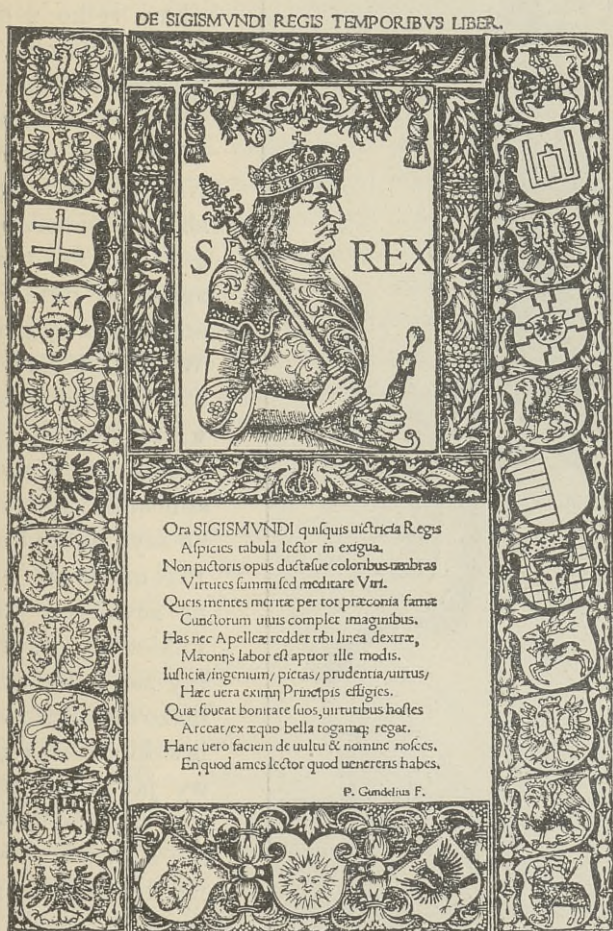 DE SIGISMVNDI REGIS TEMPORIBVS LIBER.
S REX
Ora SIGISMVNDI quiſquis uictricia Regis
Aſpicies tabula lector in exigua.
Non pictoris opus ductaſue coloribus umbras
Virtutes ſummi ſed meditare Viri.
Queis mentes meritæ per tot præconia famæ
Cunctorum uiuis complet imaginibus.
Has nec Apelleæ reddet tibi linea dextræ,
Mæonijs labor eſt aptior ille modis.
Iuſticia/ingenium/pietas/prudentia/uirtus/
Hæc uera eximij Principis effigies.
Quæ foueat bonitate ſuos, uirtutibus hoſtes
Arceat/ex æquo bella togamq; regat.
Hanc uero faciem de uultu & nomine noſces.
En quod ames lector quod uenereris habes.
P. Gundelius F.